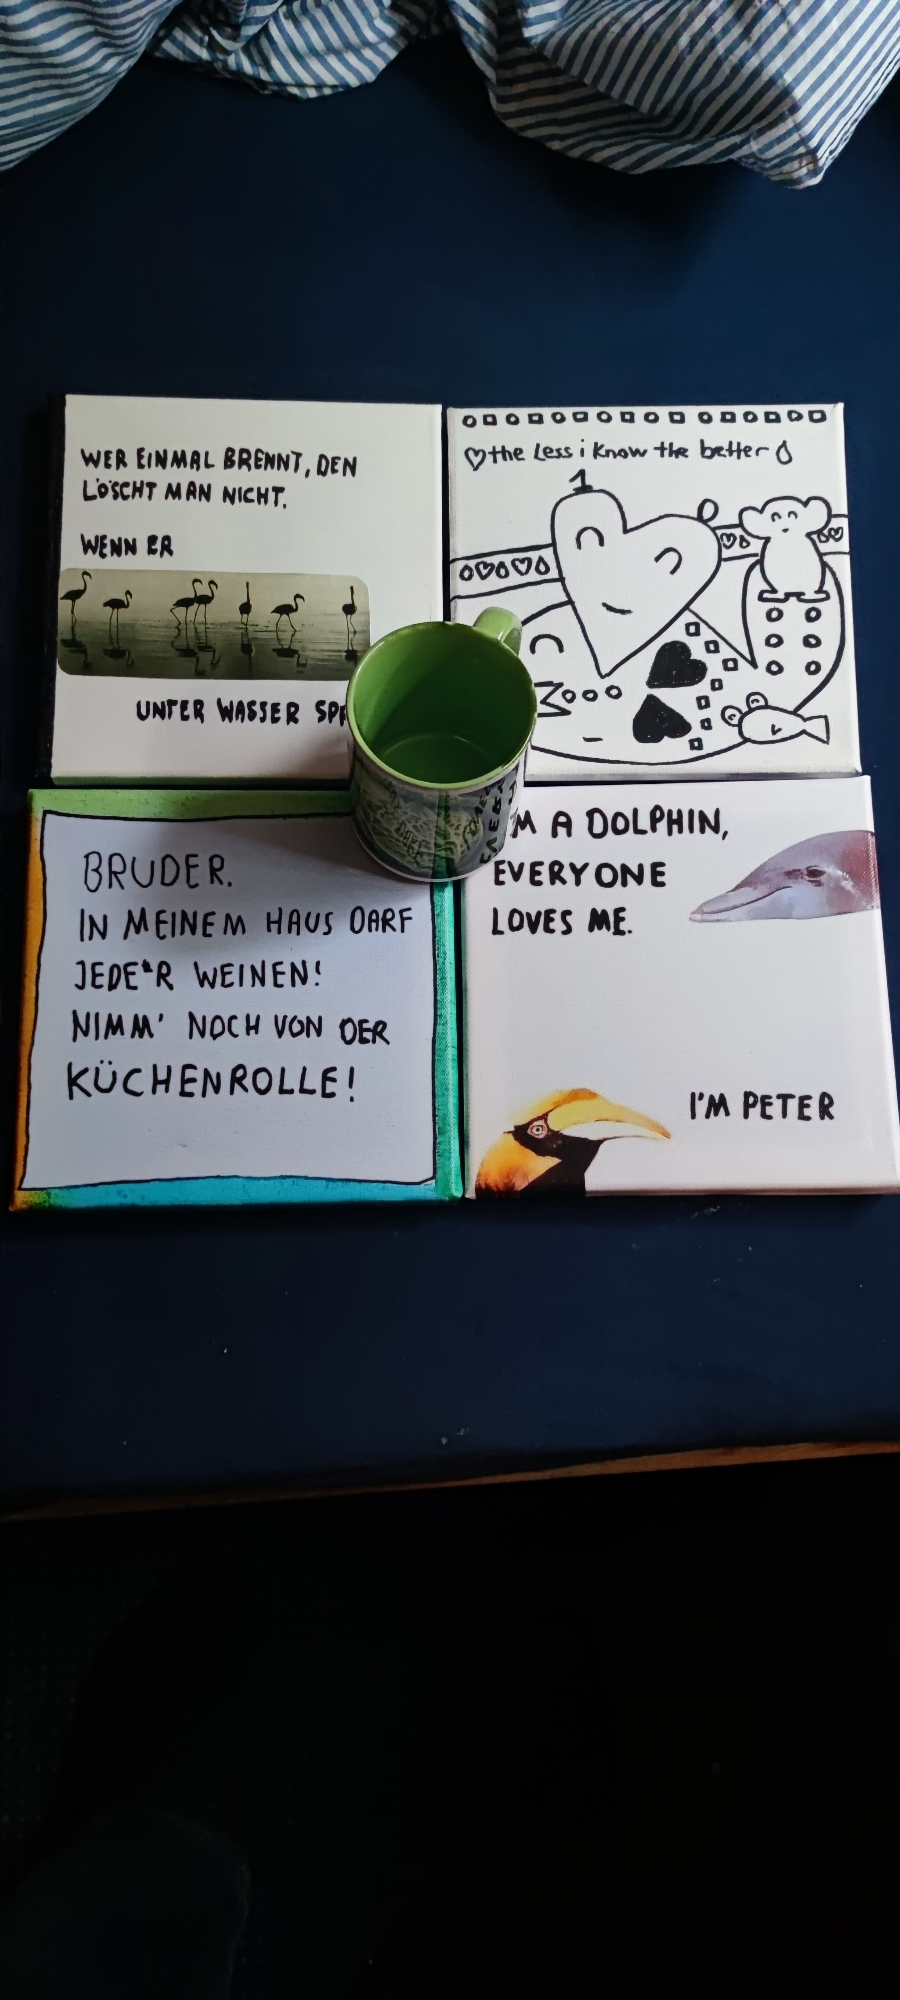 WER EINMAL BRENNT, DEN
LÖSCHT MAN NICHT.
WENN ER
UNTER WASSER
♡ the less i know the better
1
BRUDER.
IN MEINEM HAUS DARF
JEDE*R WEINEN!
NIMM' NOCH VON DER
KÜCHENROLLE!
A DOLPHIN,
EVERYONE
LOVES ME.
I'M PETER